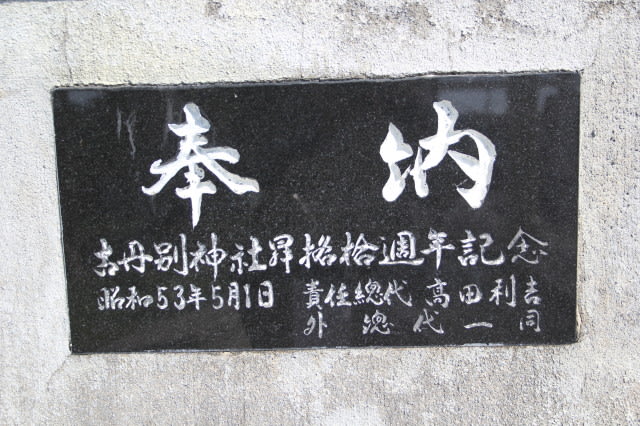 奉納
古丹別神社昇格拾週年記念
昭和53年5月1日 責任總代 高田利吉
外總代一同